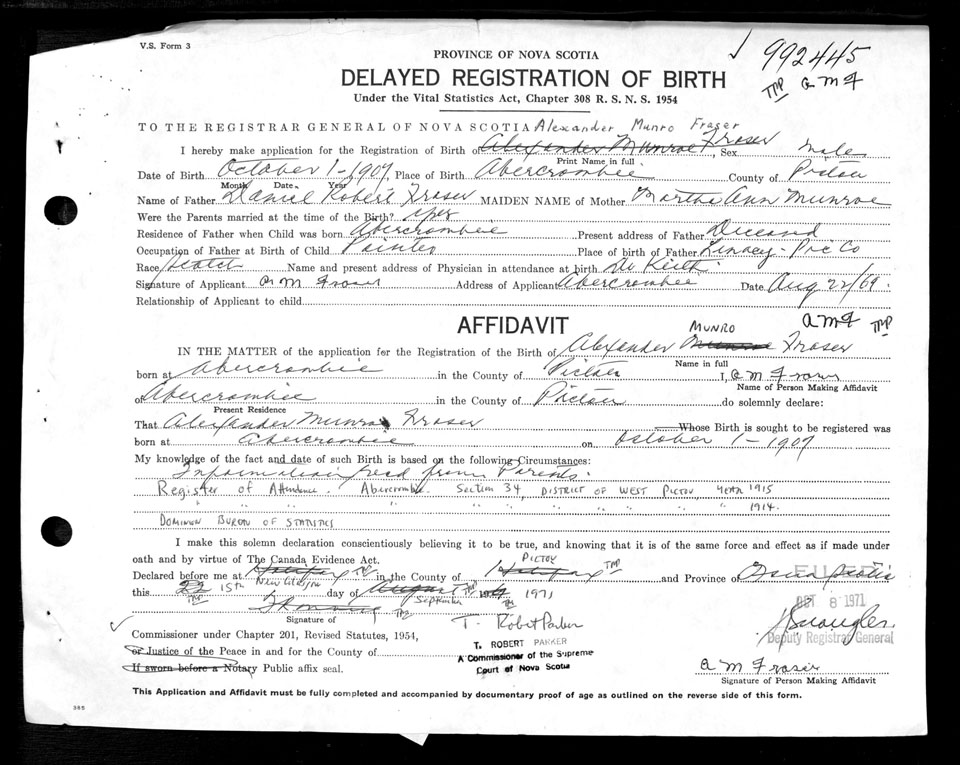 V.S. Form 3
992445
TRP A M F
PROVINCE OF NOVA SCOTIA
DELAYED REGISTRATION OF BIRTH
Under the Vital Statistics Act, Chapter 308 R. S. N. S. 1954
TO THE REGISTRAR GENERAL OF NOVA SCOTIA Alexander Munro Fraser
I hereby make application for the Registration of Birth of Alexander Munroe Fraser, Sex Male
Print Name in full
Date of Birth October 1 - 1907, Place of Birth Abercrombie County of Pictou
Month Date Year
Name of Father Daniel Robert Fraser MAIDEN NAME of Mother Martha Ann Munroe
Were the Parents married at the time of the Birth? yes
Residence of Father when Child was born Abercrombie Present address of Father Deceased
Occupation of Father at Birth of Child Painter Place of birth of Father - Pic Co
Race Scotch Name and present address of Physician in attendance at birth Dr Keith
Signature of Applicant A M Fraser Address of Applicant Abercrombie Date Aug 22/69.
Relationship of Applicant to child
AFFIDAVIT
A M F TRP
MUNRO
IN THE MATTER of the application for the Registration of the Birth of Alexander Munroe Fraser
Name in full
born at Abercrombie in the County of Pictou I, A M Fraser
Name of Person Making Affidavit
of Abercrombie in the County of Pictou do solemnly declare:
Present Residence
That Alexander Munro Fraser Whose Birth is sought to be registered was
born at Abercrombie on October 1 - 1907
My knowledge of the fact and date of such Birth is based on the following Circumstances:
Information from Parents.
Register of Attendance. Abercrombie. Section 34, DISTRICT OF WEST PICTOU YEAR 1915
" " " " " " " " 1914.
DOMINION BUREAU OF STATISTICS
I make this solemn declaration conscientiously believing it to be true, and knowing that it is of the same force and effect as if made under
oath and by virtue of The Canada Evidence Act.
PICTOU
Declared before me at Halifax New Glasgow in the County of Halifax TRP and Province of Nova Scotia
FILED
this 15th day of August September 1971
OCT 8 1971
Signature of T. Robert Parker
Deputy Registrar General
Commissioner under Chapter 201, Revised Statutes, 1954,
or Justice of the Peace in and for the County of
If sworn before a Notary Public affix seal.
T. ROBERT PARKER
A Commissioner of the Supreme
Court of Nova Scotia
A M Fraser
Signature of Person Making Affidavit
This Application and Affidavit must be fully completed and accompanied by documentary proof of age as outlined on the reverse side of this form.
385